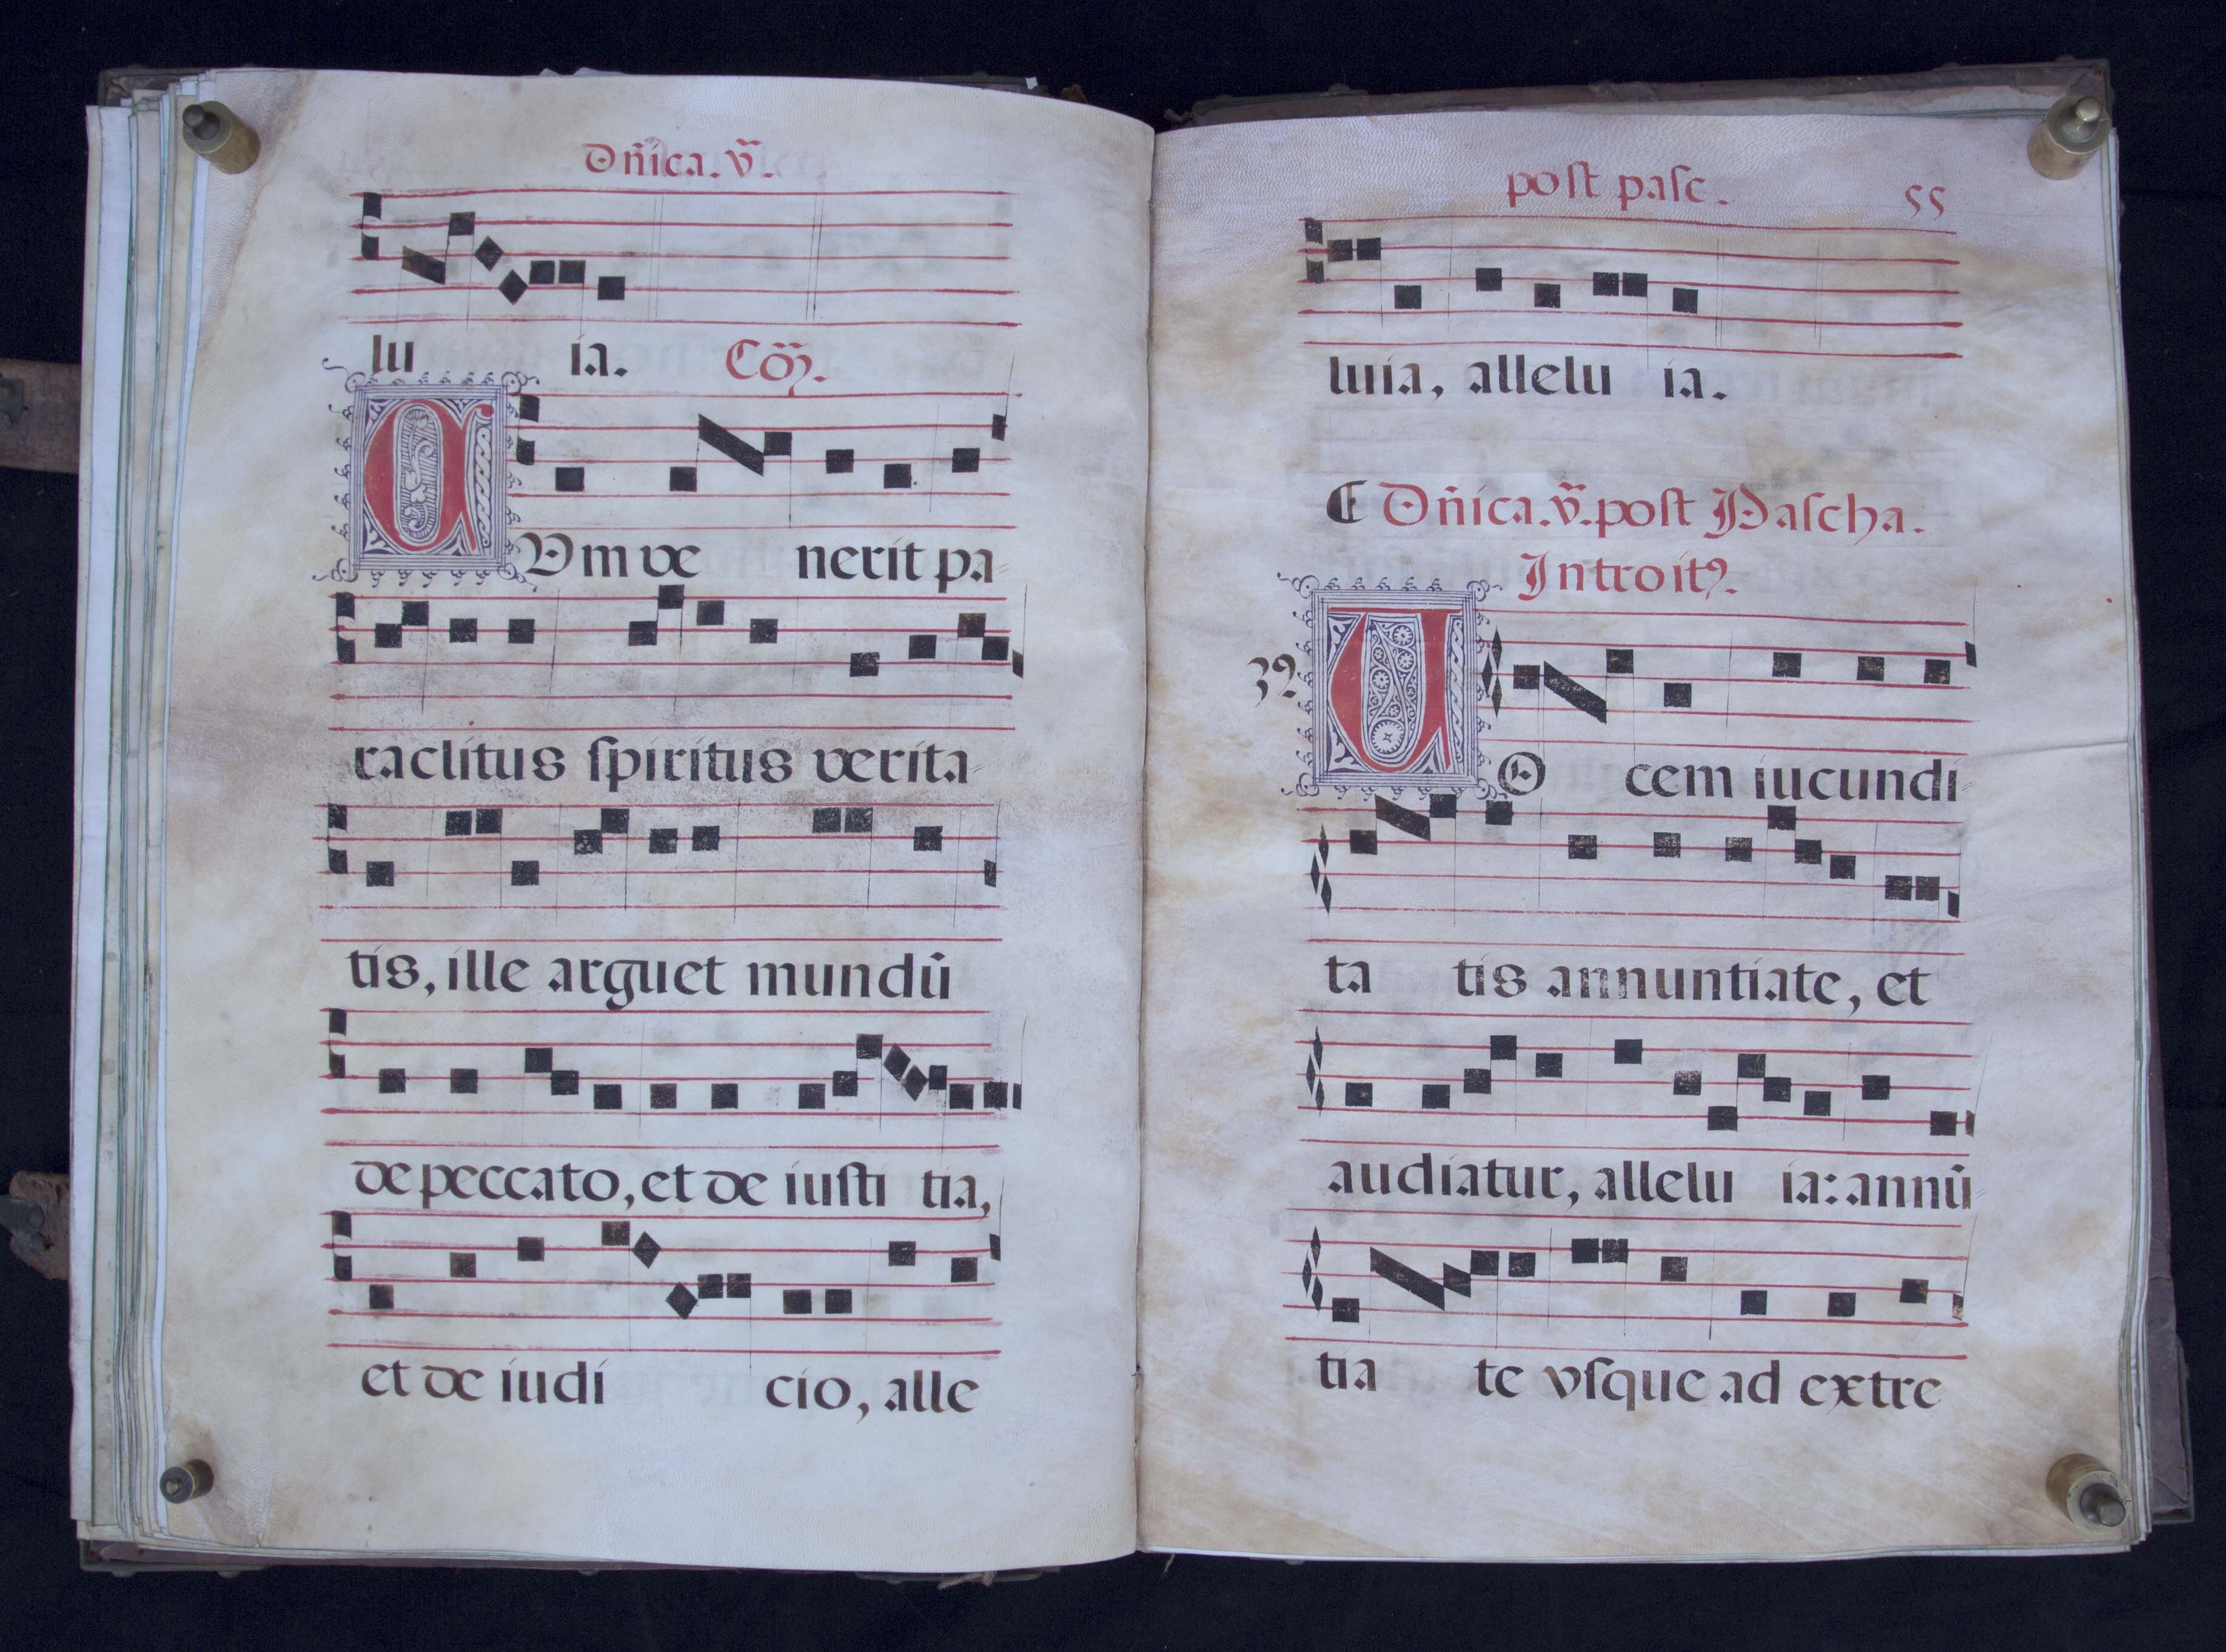 Dn̄ica. v̄.
lu ia. Cōȝ.
CVm ve nerit pa
raclitus ſpiritus verita
tis, ille arguet mundū
de peccato, et de iuſti tia,
et de iudi cio, alle
poſt paſc. 55
luia, allelu ia.
Dn̄ica. v̄. poſt Paſcha.
Introitꝰ.
39
VO cem iucundi
ta tis annuntiate, et
audiatur, allelu ia: annū
tia te vſque ad extre